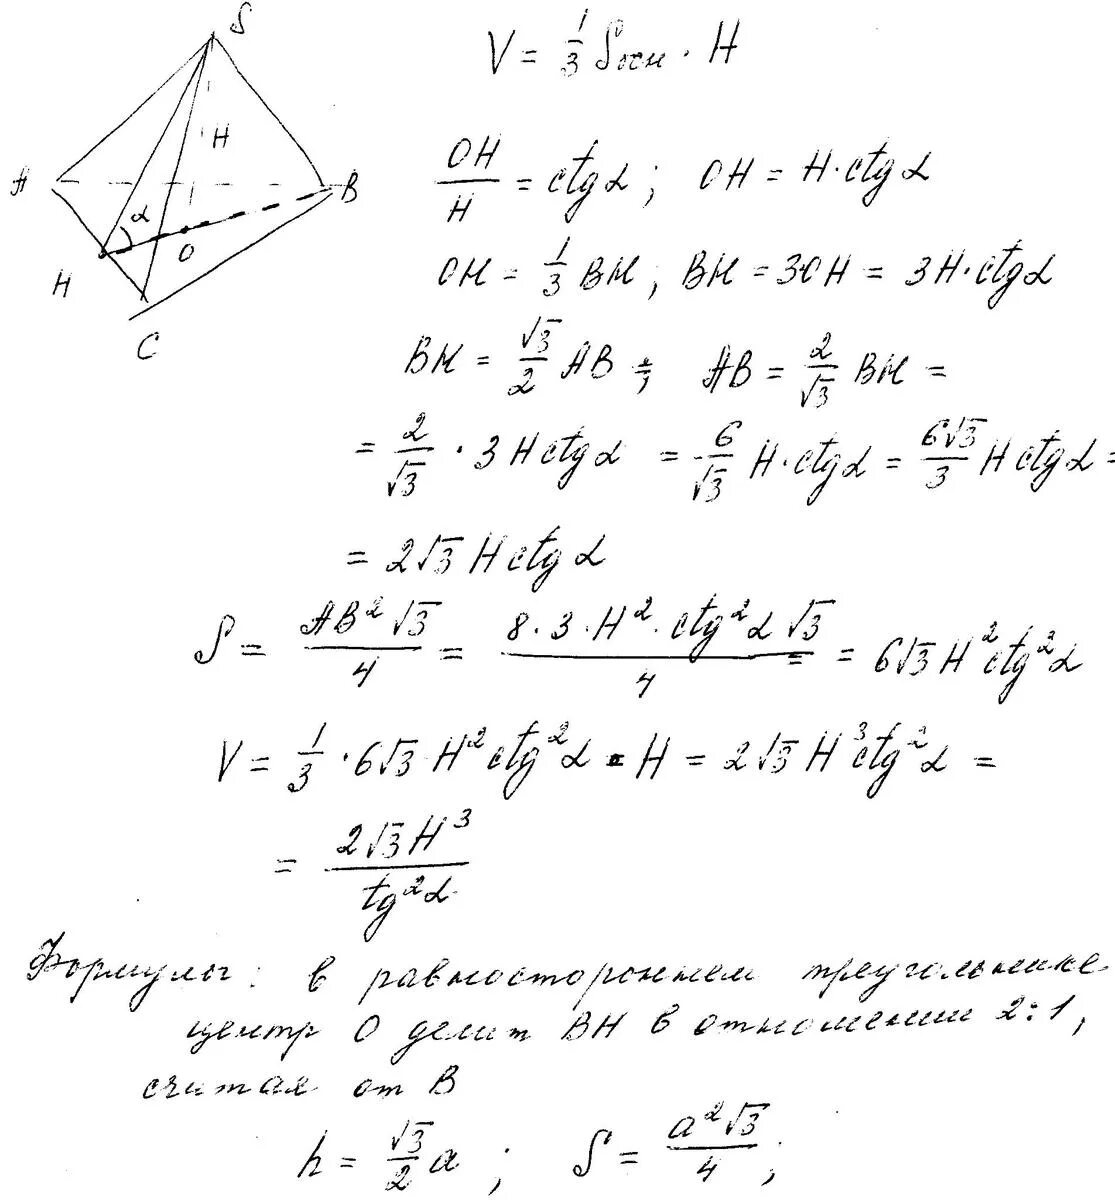 S
V = 1/3 Sосн · H
H
A
B
α
O
H
C
OH/H = ctgα ; OH = H·ctgα
OH = 1/3 BH ; BH = 3·OH = 3H·ctgα
BH = √3/2 AB ; AB = 2/√3 BH =
= 2/√3 · 3Hctgα = 6/√3 H·ctgα = 6√3/3 Hctgα =
= 2√3 Hctgα
S = AB²√3/4 = 8·3·H²·ctg²α√3/4 = = 6√3 H²ctg²α
V = 1/3 · 6√3 H²ctg²α · H = 2√3 H³ctg²α =
= 2√3H³/tg²α
Формулы: в равностороннем треугольнике
центр O делит BH в отношении 2:1,
считая от B
h = √3/2 a ; S = a²√3/4 ;